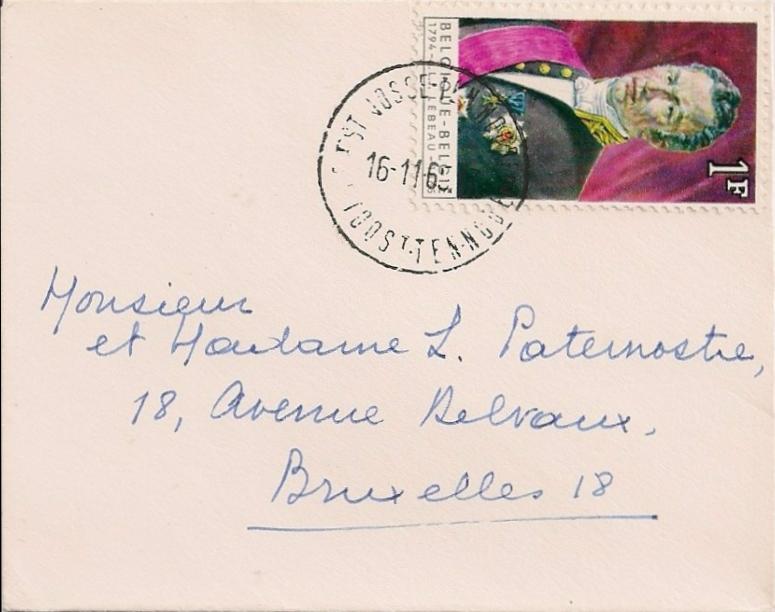 BELGIQUE-BELGIË
1794-
LEBEAU
1F
ST JOSSE-TEN-NOODE
16-11-6
JOOST-TEN-NODE
Monsieur
et Madame L. Paternostre,
18, Avenue Delvaux.
Bruxelles 18